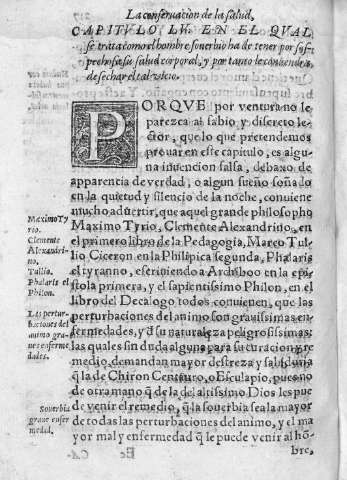 La conseruacion de la salud,
CAPITVLO LV. EN EL QVAL
se trata como el hombre soueruio ha de tener por sos-
pechosa su salud corporal, y por tanto le conuiene
desechar el tal vicio.
PORQVE por ventura no le
parezca al sabio y discreto le-
ctor, que lo que pretendemos
prouar en este capitulo, es algu-
na inuencion falsa, debaxo de
apariencia de verdad, o algun sueño soñado
en la quietud y silencio de la noche, conuiene
mucho aduertir, que aquel grande philosopho
Maximo Tyrio, Clemente Alexandrino, en
el primero libro de la Pedagogia, Marco Tu-
lio Ciceron en la Philipica segunda, Phalaris
el tyranno, escriuiendo a en la epis
stola primera, y el sapientissimo Philon, en el
libro del Decalogo todos conuienen, que las
perturbaciones del animo son grauissimas en-
fermedades, y d̃ su naturaleza peligrosissimas:
las quales sin duda alguna para su curacion y re
medio, demandan mayor destreza y sabiduria
q̃ la de Chiron Centauro, o Esculapio, pues no
de otra mano q̃ de la del altissimo Dios les pue
de venir el remedio, q̃ la souerbia sea la mayor
de todas las perturbaciones del animo, y el ma
yor mal y enfermedad q̃ le puede venir al hõ-
bre,
Maximo Ty
rio.
Clemente
Alexandri-
no.
Tullio.
Phalaris el
Philon.
Las pertur-
baciones del
animo gra-
ues enferme
dades.
Souerbia
graue enfer
medad.